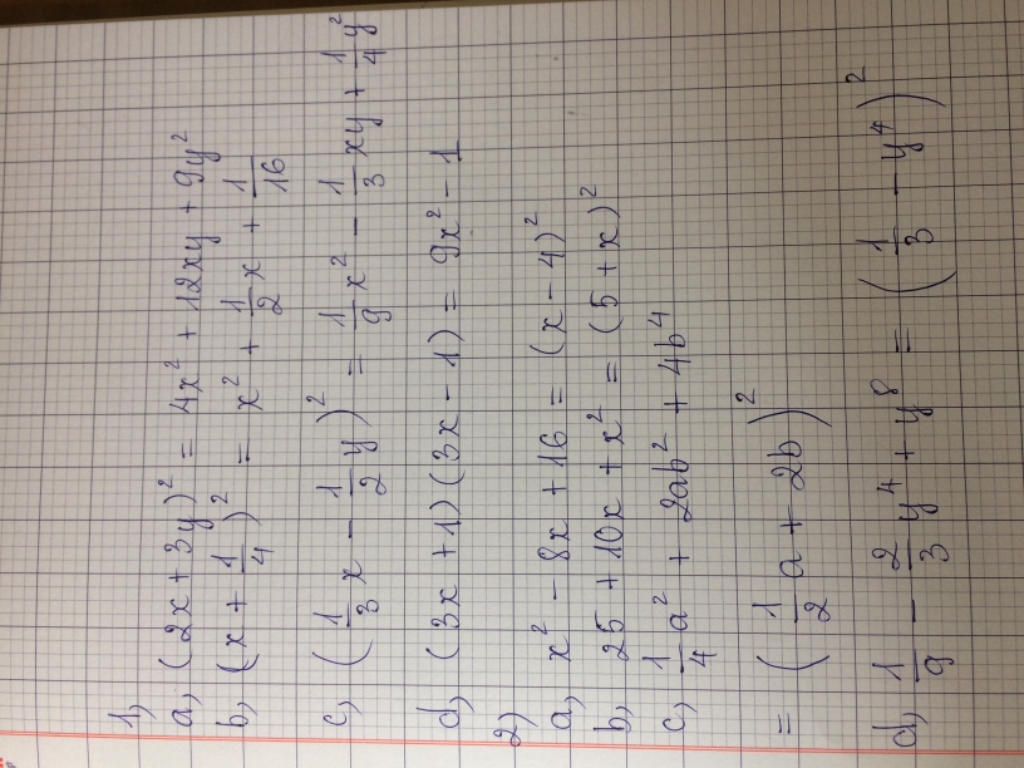 1,
a, (2x + 3y)² = 4x² + 12xy + 9y²
b, (x + 1/4)² = x² + 1/2x + 1/16
c, (1/3x - 1/2y)² = 1/9x² - 1/3xy + 1/4y²
d, (3x + 1)(3x - 1) = 9x² - 1
2)
a, x² - 8x + 16 = (x - 4)²
b, 25 + 10x + x² = (5 + x)²
c, 1/4a² + 2ab² + 4b⁴
= (1/2a + 2b)²
d, 1/9 - 2/3y⁴ + y⁸ = (1/3 - y⁴)²